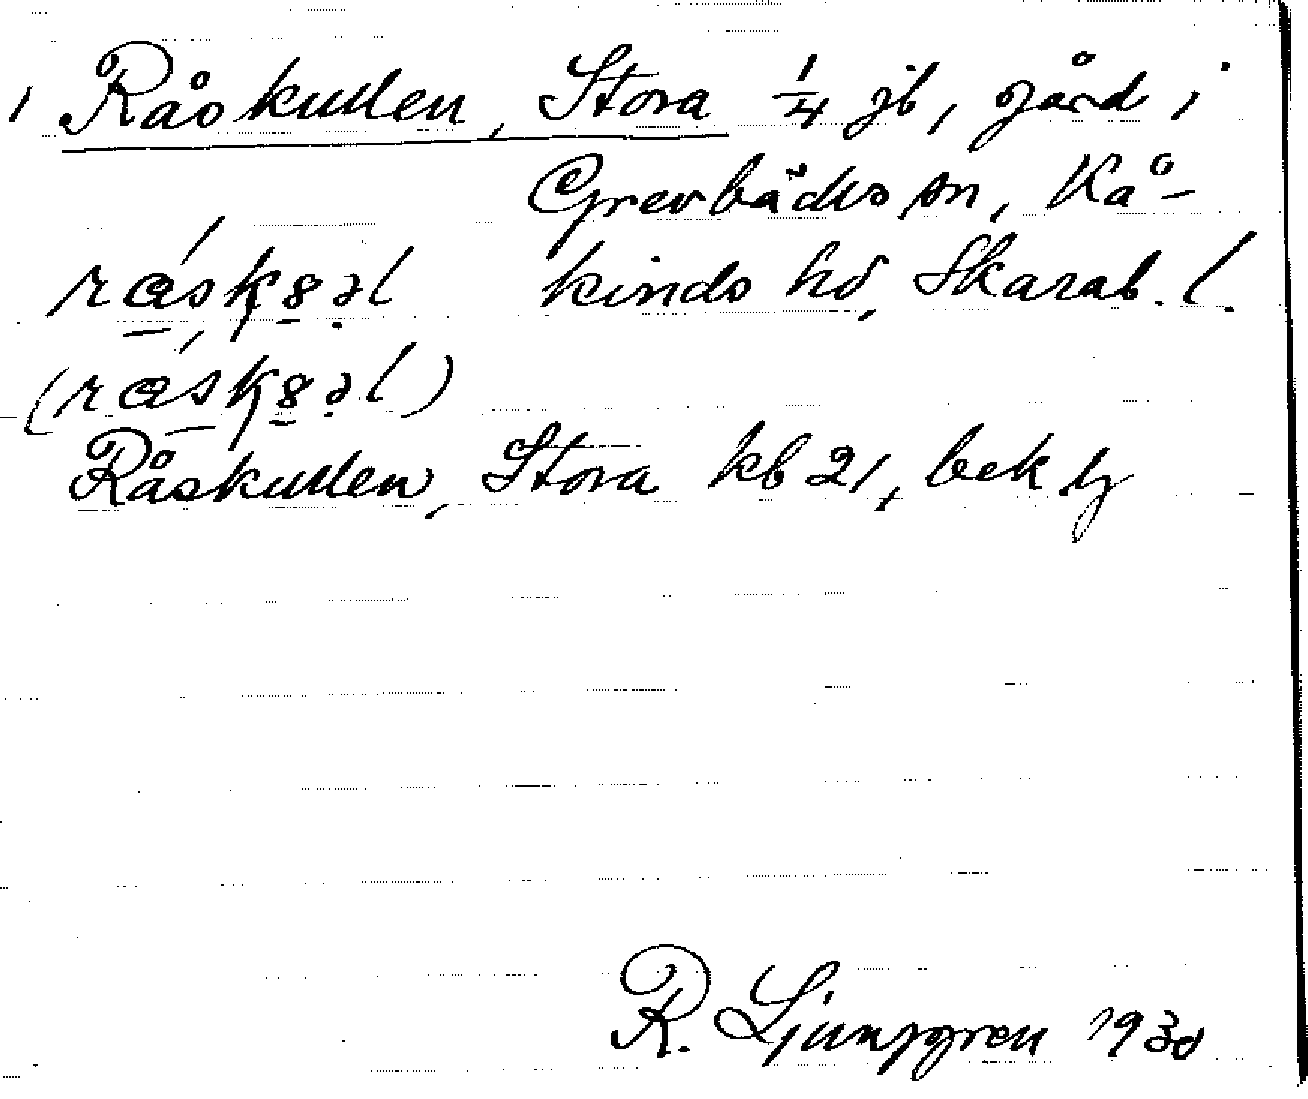 1 Råskullen, Stora 1/4 jb, gård i
Grevbäcks sn, Kå-
kinds hd, Skarab. l.
Råskullen, Stora kb 21, bek
R. Ljunggren 1930